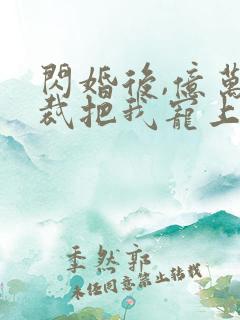 閃婚後,億萬
裁把我寵上
季然郭
未經同意禁止轉載